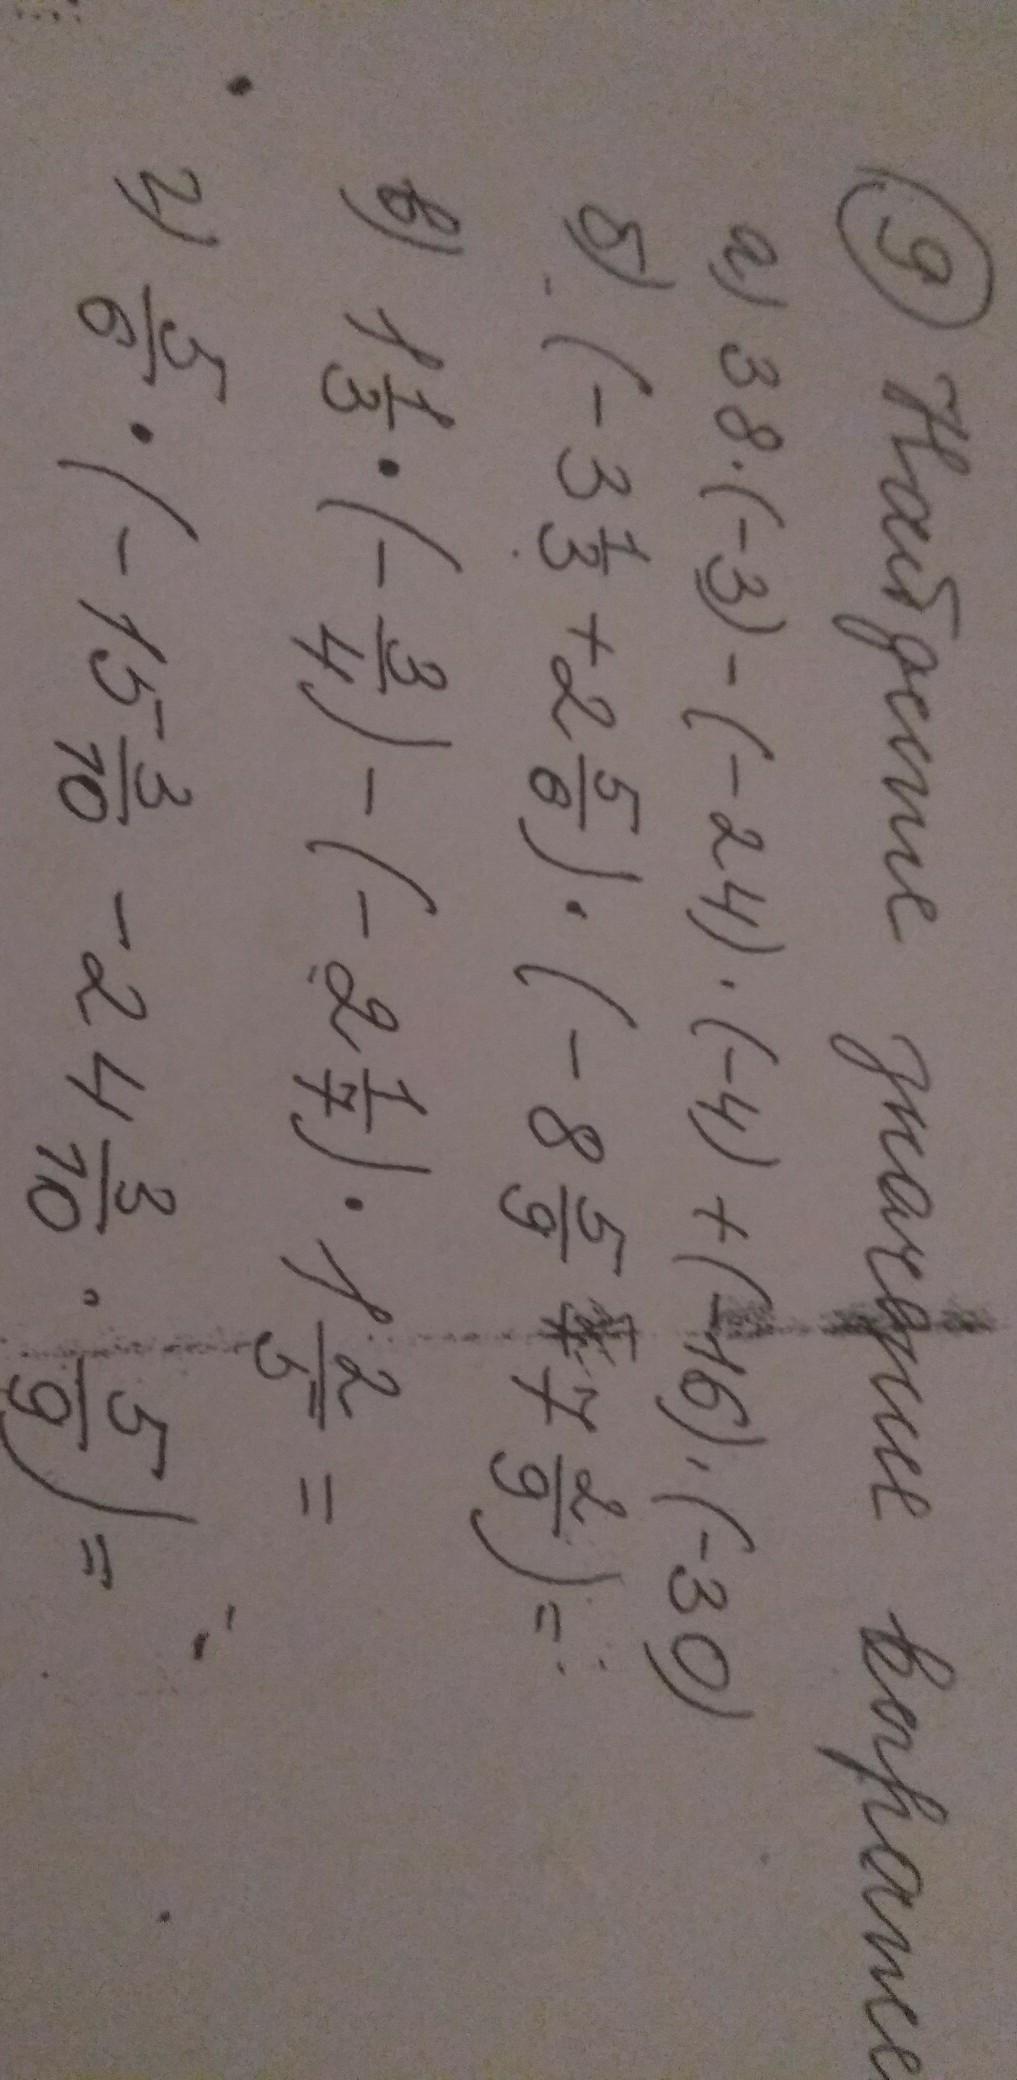 9 Найдите значение выражение
а) 38·(-3)-(-24)·(-4)+(-16)·(-30)
б) (-3 1/3 + 2 5/6)·(-8 5/9 7 2/9)=
в) 1 1/3·(-3/4)-(-2 1/7)·1 2/5=
г) 5/6·(-15 3/10 -24 3/10·5/9)=